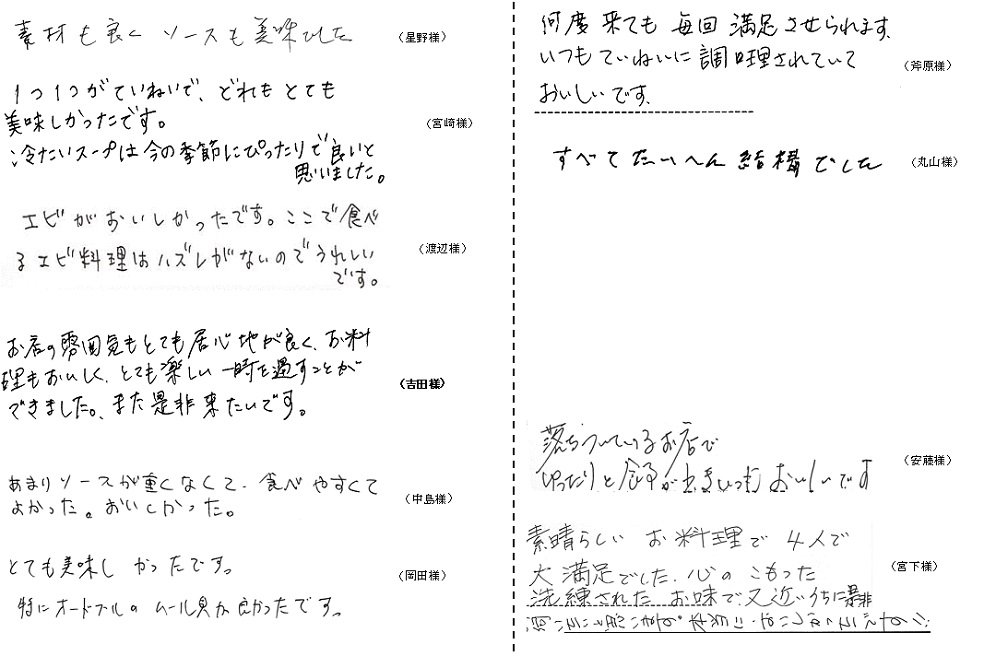 素材も良く ソースも美味でした
(星野様)
1つ1つがていねいで、どれもとても
美味しかったです。
(宮崎様)
冷たいスープは今の季節にぴったりで良いと
思いました。
エビがおいしかったです。ここで食べ
るエビ料理はハズレがないのでうれしい
です。
(渡辺様)
お店の雰囲気もとても居心地が良く、お料
理もおいしく、とても楽しい一時を過すことが
できました。また是非来たいです。
(吉田様)
あまりソースが重くなくて、食べやすくて
よかった。おいしかった。
(中島様)
とても美味しかったです。
(岡田様)
特にオードブルのムール貝が良かったです。
何度来ても毎回満足させられます。
いつもていねいに調理されていて
(斧原様)
おいしいです。
すべてたいへん結構でした
(丸山様)
落ちついているお店で
ゆったりと食事ができいつもおいしいです
(安藤様)
素晴らしいお料理で4人で
大満足でした。心のこもった
(宮下様)
洗練されたお味で又近いうちに是非